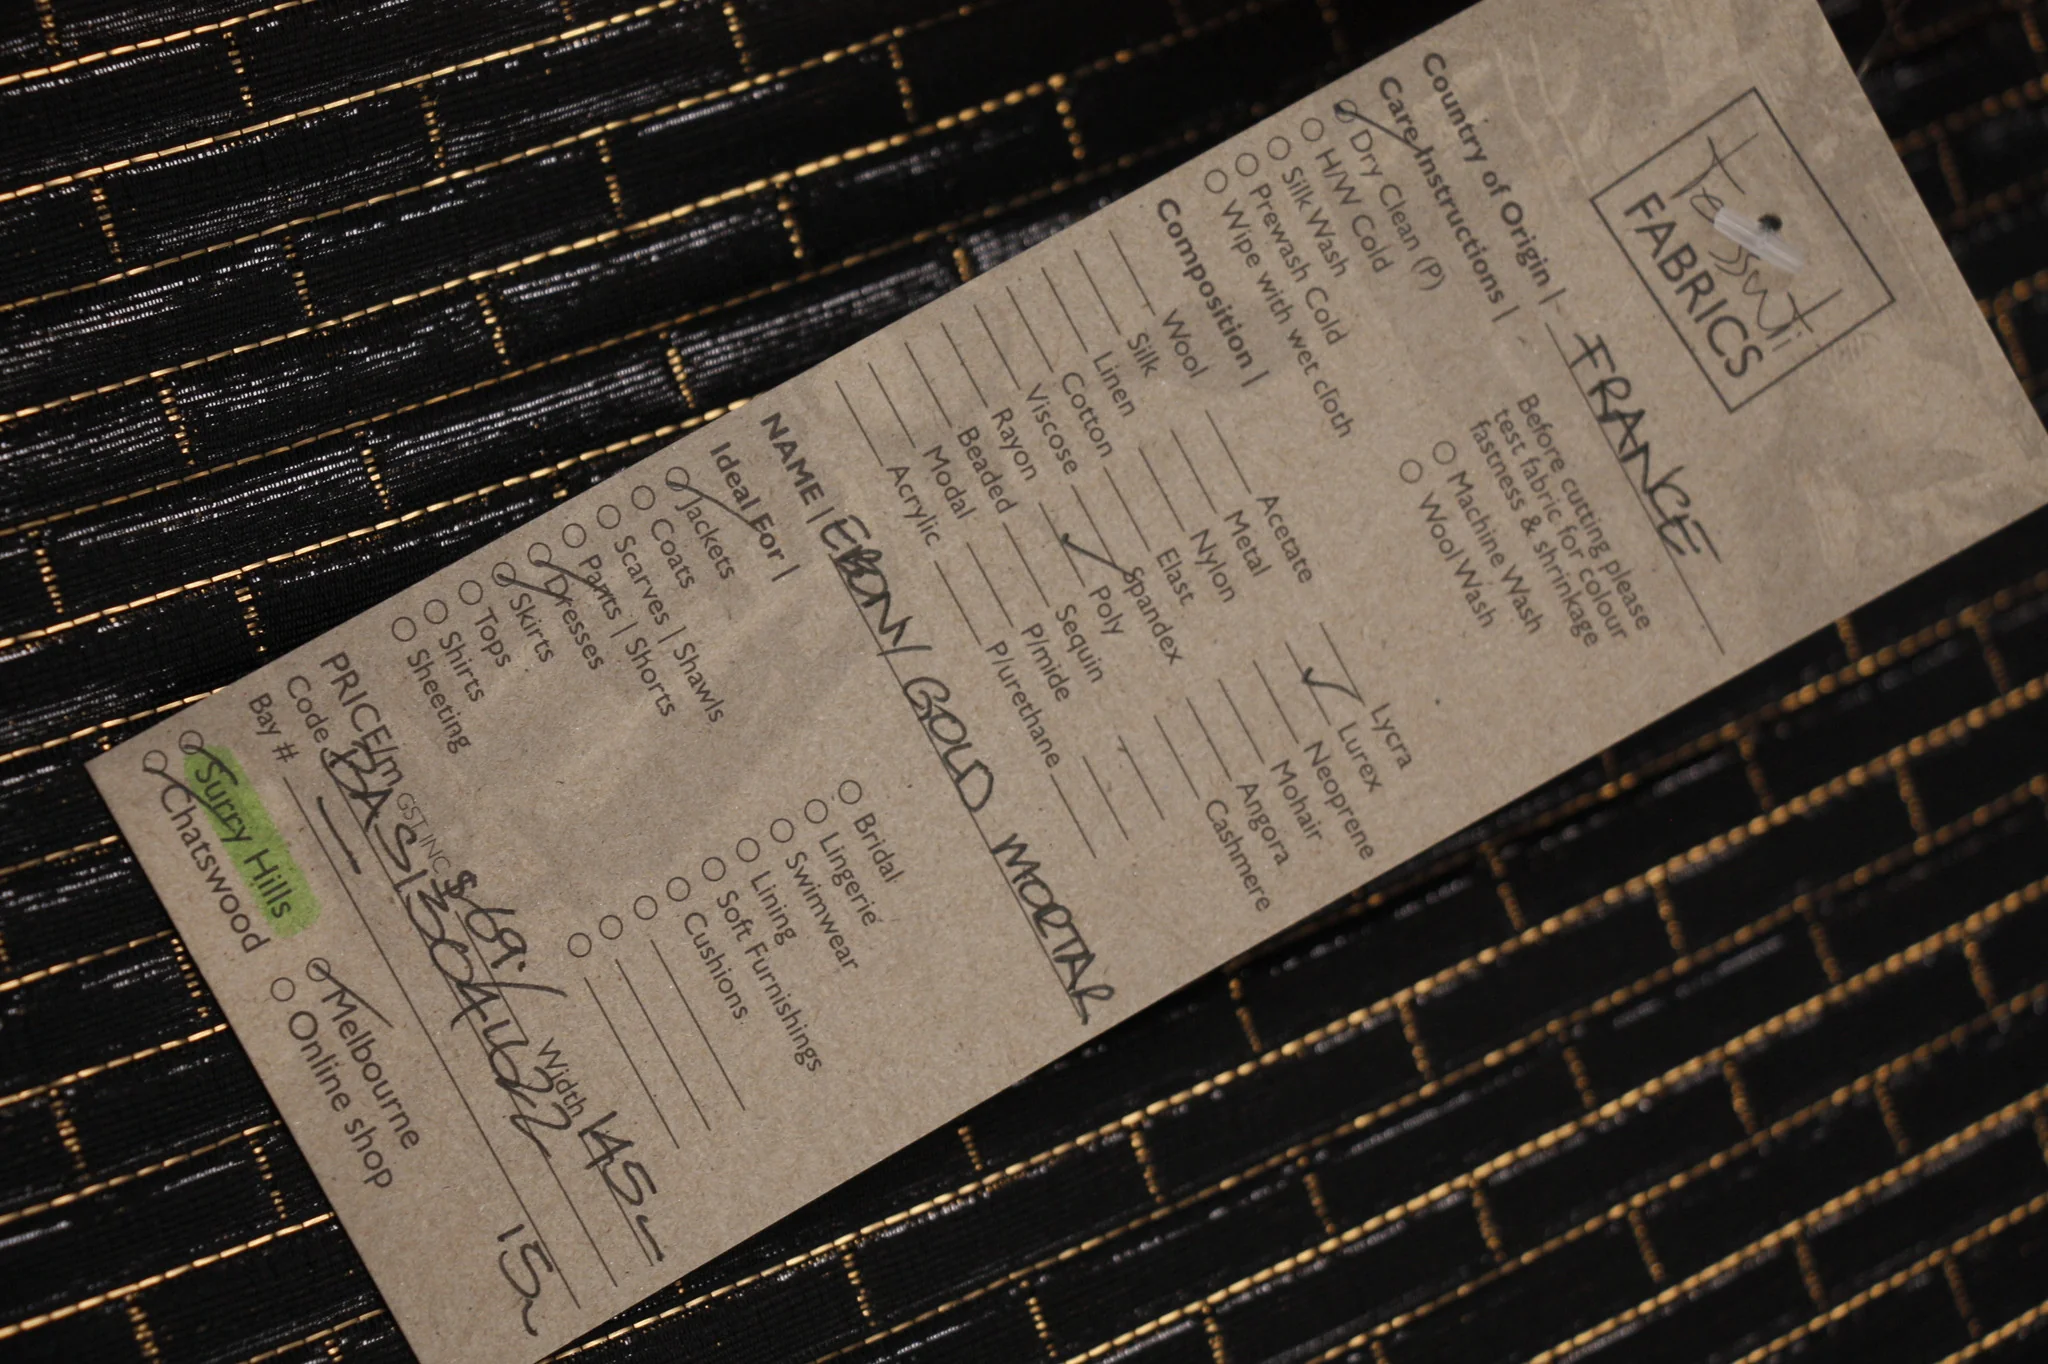 Tessuti
FABRICS
Country of Origin | FRANCE
Care Instructions |
Before cutting please
test fabric for colour
fastness & shrinkage
Dry Clean (P)
H/W Cold
Silk Wash
Prewash Cold
Wipe with wet cloth
Machine Wash
Wool Wash
Composition |
Wool Acetate Lycra
Silk Metal Lurex
Linen Nylon Neoprene
Cotton Elast Mohair
Viscose Spandex Angora
Rayon Poly Cashmere
Beaded Sequin
Modal P/mide
Acrylic P/urethane
NAME | EBONY GOLD MORTAR
Ideal For |
Jackets Bridal
Coats Lingerie
Scarves | Shawls Swimwear
Pants | Shorts Lining
Dresses Soft Furnishings
Skirts Cushions
Tops
Shirts
Sheeting
PRICE/m GST INC $69 Width 145
Code
Bay # 15
Surry Hills Melbourne
Chatswood Online shop